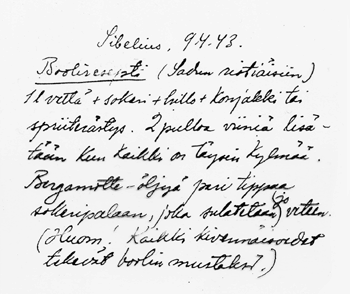 Sibelius, 9.4.43.
Booliresepti (Sadun ristiäisiin)
1 l vettä + sokeri + hillo + Konjakki tai
spriitkästys. 2 pulloa viiniä lisä-
tään kun kaikki on täysin kylmää.
Bergamotte-öljyä pari tippaa
sokeripalaan, joka sulatetaan veteen.
(Huom! Kaikki kivennäisvedet
tekevät boolin mustaksi.)